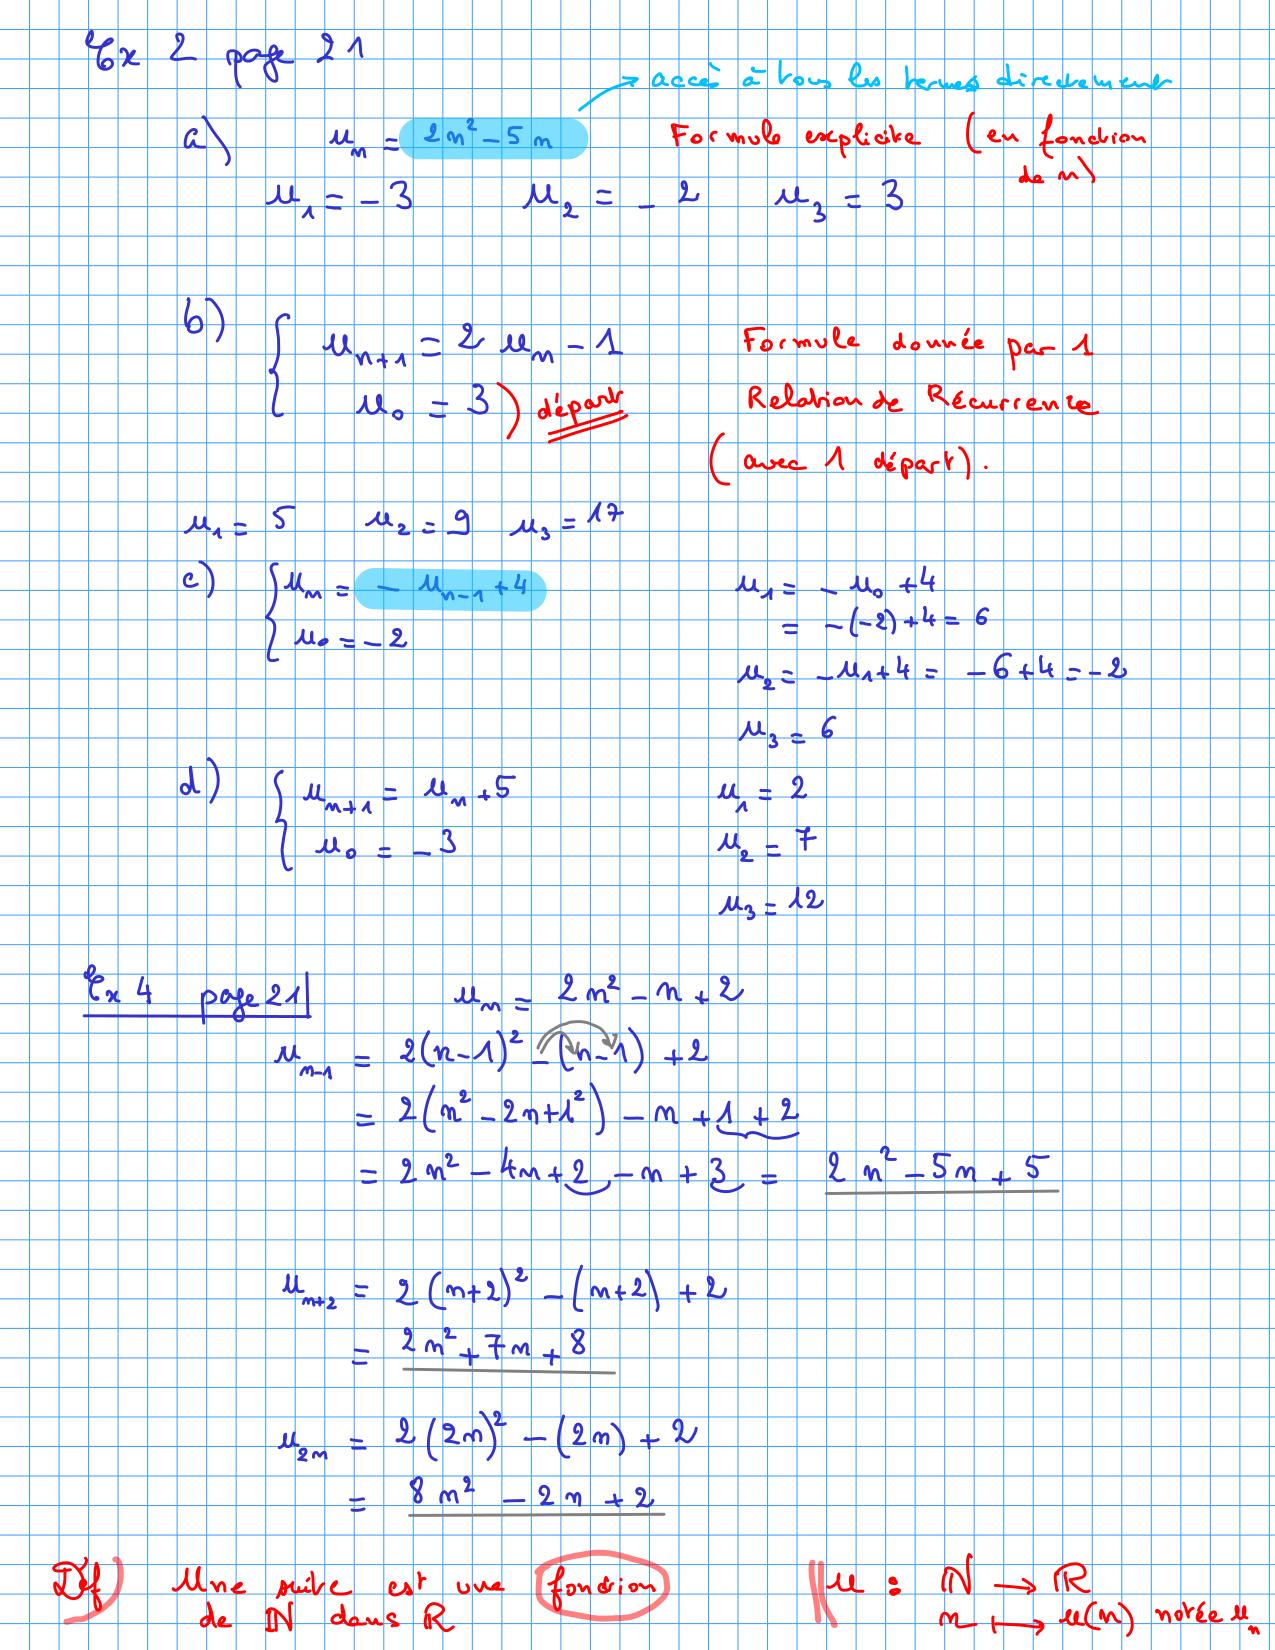 Ex 2 page 21
→ accès à tous les termes directement
a) u_n = 2n² - 5n Formule explicite (en fonction de n)
u_1 = -3 u_2 = -2 u_3 = 3
b) { u_{n+1} = 2 u_n - 1 Formule donnée par 1
u_0 = 3 ) départ Relation de Récurrence
(avec 1 départ).
u_1 = 5 u_2 = 9 u_3 = 17
c) { u_n = - u_{n-1} + 4 u_1 = - u_0 + 4
= -(-2)+4 = 6
u_0 = -2
u_2 = -u_1+4 = -6+4 = -2
u_3 = 6
d) { u_{n+1} = u_n + 5 u_1 = 2
u_0 = -3 u_2 = 7
u_3 = 12
Ex 4 page 21 u_n = 2n² - n + 2
u_{n-1} = 2(n-1)² - (n-1) + 2
= 2(n² - 2n + 1²) - n + 1 + 2
= 2n² - 4n + 2 - n + 3 = 2n² - 5n + 5
u_{n+2} = 2(n+2)² - (n+2) + 2
= 2n² + 7n + 8
u_{2n} = 2(2n)² - (2n) + 2
= 8n² - 2n + 2
Déf) Une suite est une fonction || u : ℕ → ℝ
de ℕ dans ℝ n ↦ u(n) notée u_n